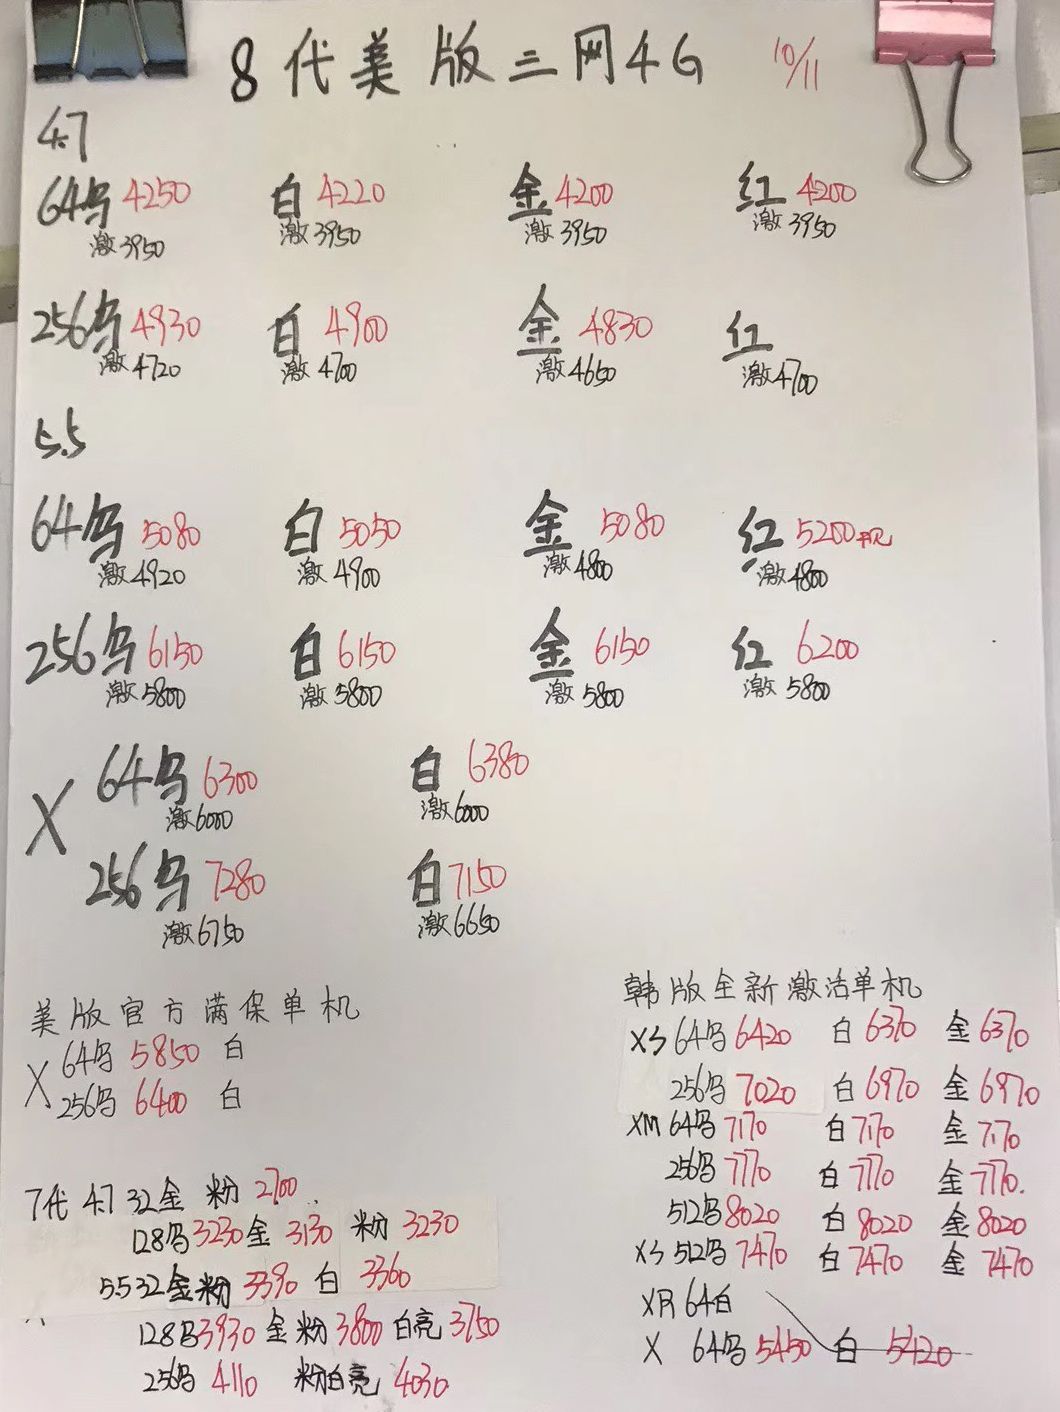 8代美版三网4G 10/11
4.7
64乌 4250 白 4220 金 4200 红 4200
激3950 激3950 激3950 激3950
256乌 4930 白 4900 金 4830 红
激4720 激4700 激4650 激4700
5.5
64乌 5080 白 5050 金 5080 红 5200
激4920 激4900 激4800 激4800
256乌 6150 白 6150 金 6150 红 6200
激5800 激5800 激5800 激5800
X 64乌 6300 白 6380
激6000 激6000
256乌 7280 白 7150
激6750 激6650
美版官方满保单机
X 64乌 5850 白
256乌 6400 白
7代 4.7 32金 粉 2700
128乌 3230 金 3130 粉 3230
5.5 32金粉 3390 白 3360
128乌 3930 金粉 3800 白亮 3750
256乌 4110 粉白亮 4030
韩版全新激活单机
XS 64乌 6420 白 6370 金 6370
256乌 7020 白 6970 金 6970
XM 64乌 7170 白 7170 金 7170
256乌 7770 白 7770 金 7770.
512乌 8020 白 8020 金 8020
XS 512乌 7470 白 7470 金 7470
XR 64白
X 64乌 5450 白 5420